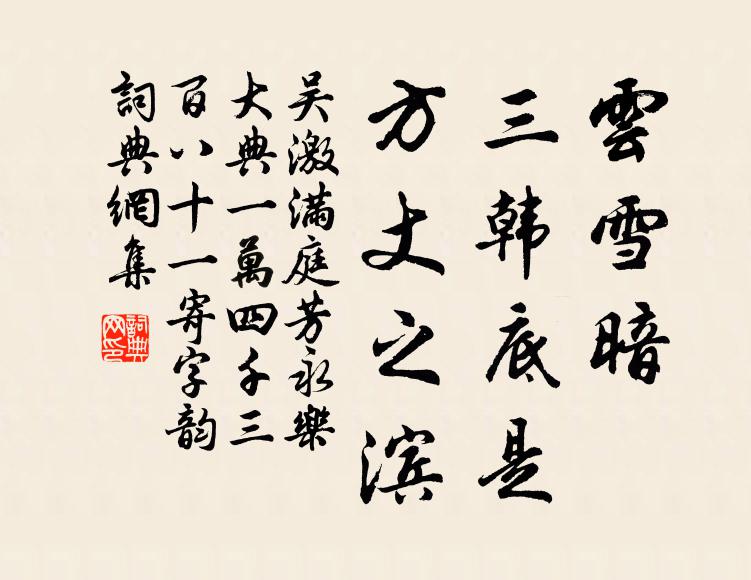 雲雪暗
三韩底是
方丈之滨
吴激满庭芳永樂
大典一萬四千三
百八十一寄字韵
詞典網集
詞典
网印